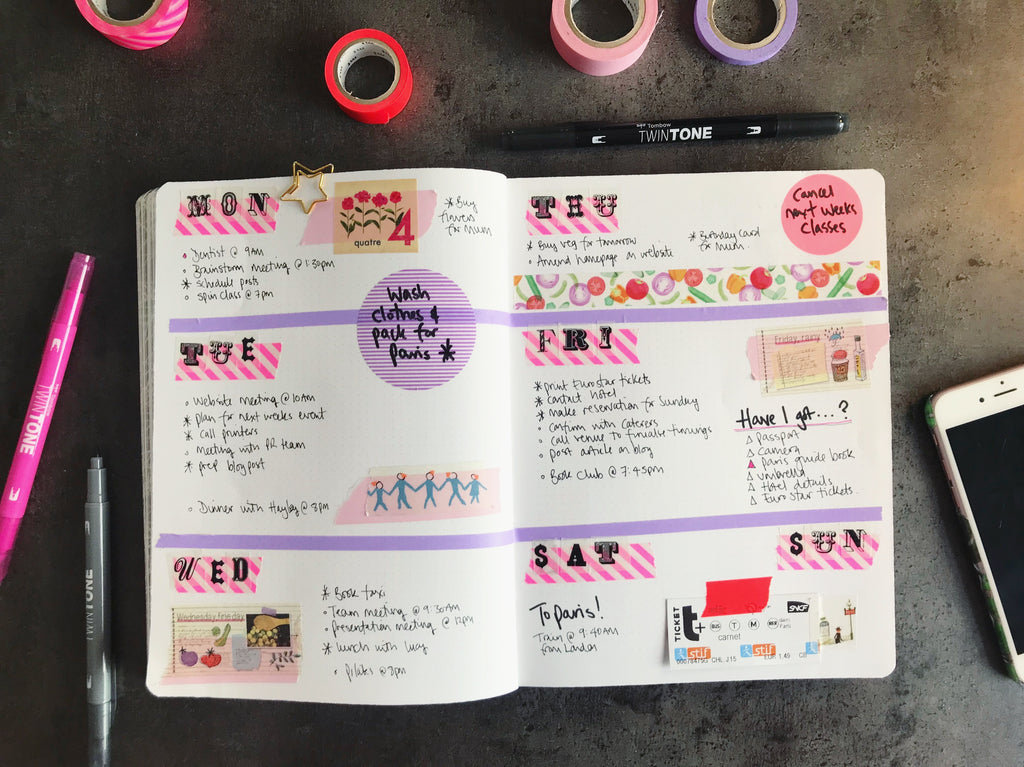 Tombow
TWINTONE
TWINTONE
TWINTONE
MON
quatre
4
* Buy
flowers
for Mum
Dentist @ 9AM
Brainstorm meeting @ 1:30pm
* schedule posts
spin class @ 7pm
Wash
clothes &
pack for
Paris *
TUE
Website meeting @ 10AM
* plan for next weeks event
* call printers
meeting with PR team
* prep blog post
Dinner with Hayley @ 8pm
WED
Wednesday
* Book taxi
Team meeting @ 9:30AM
Presentation meeting @ 12pm
* lunch with Lucy
Pilates @
THU
* Buy veg for tomorrow
Amend homepage on website
* Birthday card
for Mum.
Cancel
next weeks
classes
FRI
Friday, rainy
* print Eurostar tickets
* contact hotel
* make reservation for Sunday
Confirm with caterers
Call venue to finalise timings
post article on blog
Book Club @ 7:45pm
Have I got...?
passport
camera
paris guide book
umbrella
Hotel details
Eurostar tickets.
SAT
To paris!
Train @ 9:40AM
from London
SUN
TICKET
t+
BUS
T
M
RER
dans
Paris
SNCF
carnet
stif
stif
CHL J15
EUR 1,49